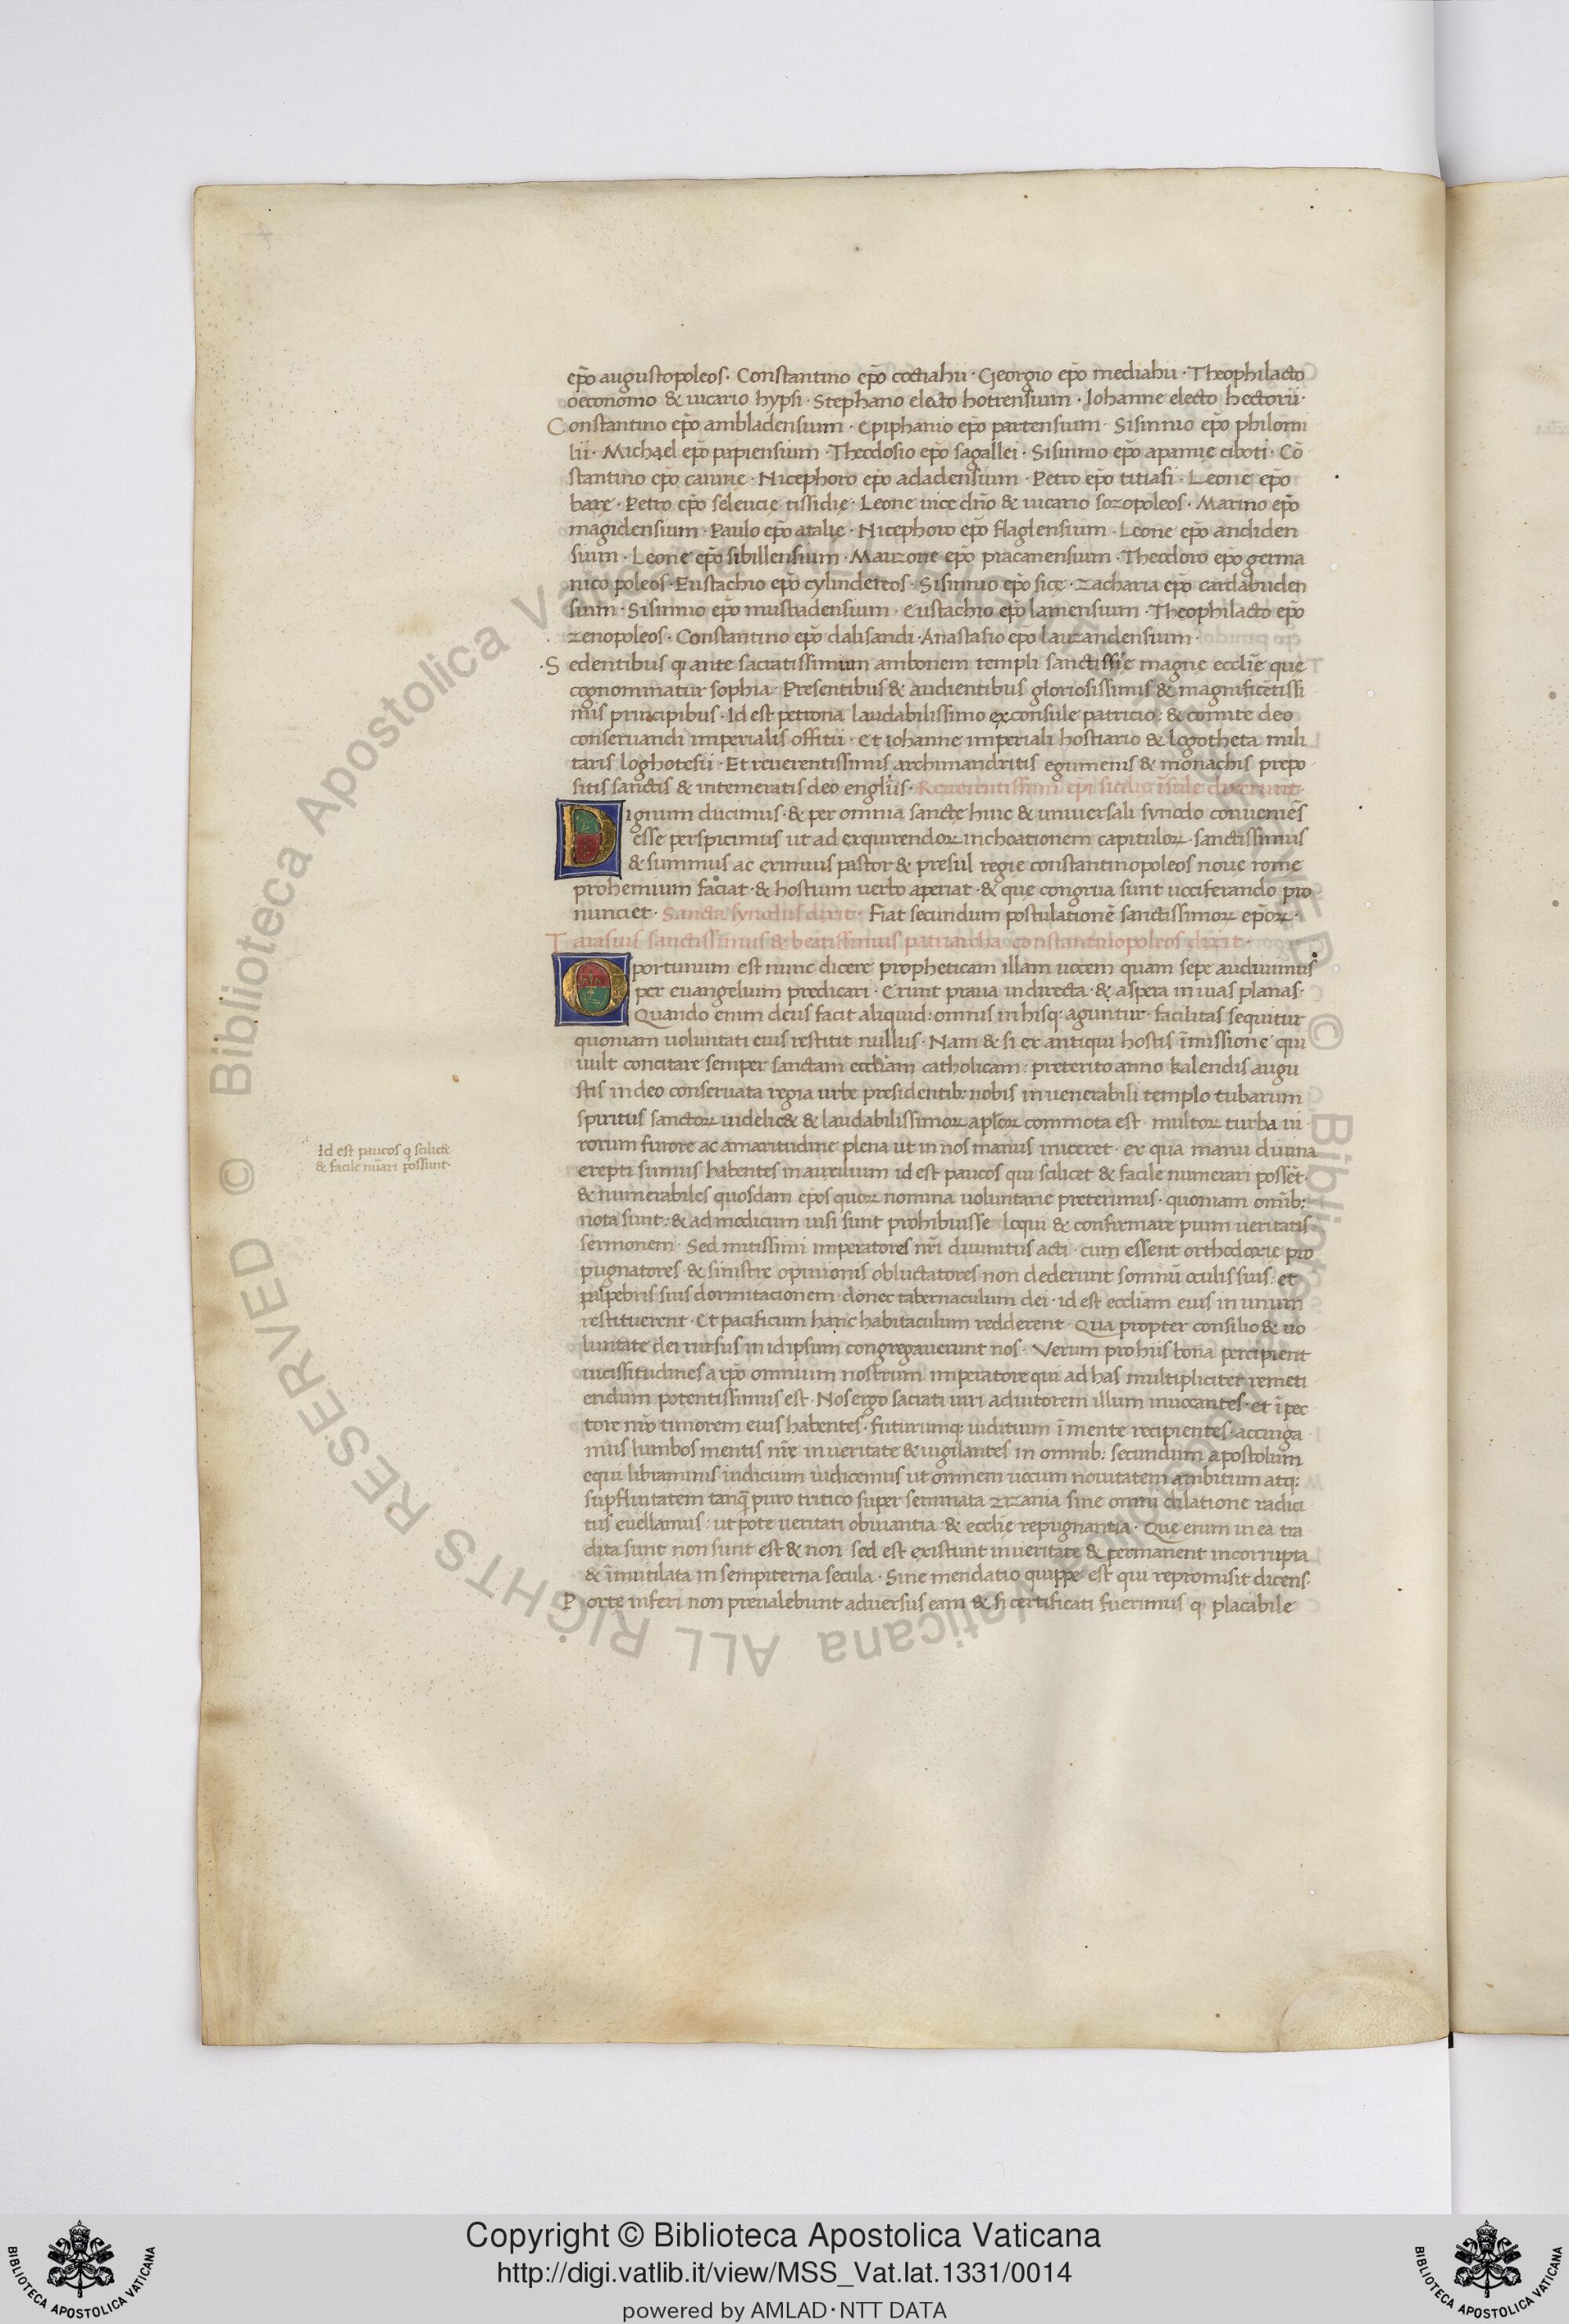 ep̄o augustopoleos · Constantino ep̄o coctiahii · Georgio ep̄o mediahii · Theophilacto
oeconomo & uicario hypsi · Stephano electo hotrensium · Iohanne electo hectorū ·
Constantino ep̄o ambladensium · Epiphanio ep̄o partensium · Sisinnio ep̄o philomi
lii · Michael ep̄o papiensium · Theodosio ep̄o sagallei · Sisinnio ep̄o apamię ciboti · Cō
stantino ep̄o caninę · Nicephoro ep̄o adadensium · Petro ep̄o titiasi · Leone ep̄o
barę · Petro ep̄o seleucię tissidię · Leone uice dn̄o & uicario sozopoleos · Marino ep̄o
magidensium · Paulo ep̄o atalię · Nicephoro ep̄o flaglensium · Leone ep̄o andiden
sium · Leone ep̄o sibillensium · Mauzone ep̄o pracanensium · Theodoro ep̄o germa
nico poleos · Eustachio ep̄o cylindereos · Sisinnio ep̄o sicę · zacharia ep̄o cardabuden
sium · Sisinnio ep̄o musbadensium · Eustachio ep̄o lamensium · Theophilacto ep̄o
zenopoleos · Constantino ep̄o dalisandi · Anastasio ep̄o lauzandensium ·
Sedentibus qͥ ante sacratissimum ambonem templi sanctissīe magne eccl̄ie que
cognominatur sophia · Presentibus & audientibus gloriosissimis & magnificētissi
mis principibus · Id est petrona laudabilissimo exconsule patricio : & comite deo
conseruandi imperialis offitii · Et iohanne imperiali hostiario & logotheta mili
taris loghotesii · Et reuerentissimis archimandritis egumenis & monachis prepo
sitis sanctis & intemeratis deo engl̄iis · Reuerentissimi ep̄i sicilię
Dignum ducimus · & per omnia sanctę huic & uniuersali synodo conueniēs
esse perspicimus ut ad exquirendoꝝ inchoationem capituloꝝ · sanctissimus
& summus ac eximius pastor & presul regię constantinopoleos nouę romę
prohemium faciat · & hostium uerbo aperiat · & que congrua sunt uociferando pro
nunciet · Sancta synodus dixit · Fiat secundum postulationē sanctissimoꝝ ep̄oꝝ ·
Tarasius sanctissimus & beatissimus patriarcha constantinopoleos dixit ·
Oportunum est nunc dicere propheticam illam uocem quam sepe audiuimus
per euangelium predicari · Erunt praua in directa · & aspera in uias planas ·
Quando enim deus facit aliquid : omnis in hisq: aguntur · facilitas sequitur
quoniam uoluntati eius restitit nullus · Nam & si ex antiqui hostis īmissione qui
uult concitare semper sanctam eccl̄iam catholicam : preterito anno kalendis augu
stis in deo conseruata regia urbe presidentib: nobis in uenerabili templo tubarum
spiritus sanctoꝝ uidelic& & laudabilissimoꝝ apl̄oꝝ commota est multoꝝ turba ui
rorum furore ac amaritudine plena ut in nos manus iniceret · ex qua manu diuina
erepti sumus habentes in auxilium id est paucos qui scilicet & facile numerari possēt ·
& numerabiles quosdam ep̄os quoꝝ nomina uoluntarie preterimus · quoniam omīb:
nota sunt : & ad modicum uisi sunt prohibuisse loqui & confirmare pium ueritatis
sermonem · Sed mitissimi imperatores nr̄i diuinitus acti · cum essent orthodoxię pro
pugnatores & sinistrę opinionis obluctatores non dederunt somnū oculis suis : et
palpebris suis dormitacionem · donec tabernaculum dei · id est eccl̄iam eius in unum
restituerent · Et pacificum hanc habitaculum redderent · Qua propter consilio & uo
luntate dei rursus in id ipsum congregauerunt nos · Verum pro hiis bona percipient
uicissitudines a xp̄o omnium nostrum imperatore qui ad has multipliciter remeti
endum potentissimus est · Nos ergo sacrati uiri adiutorem illum inuocantes · et ī pec
tore nr̄o timorem eius habentes · futurumq: iuditium ī mente recipientes · accinga
mus lumbos mentis nr̄ę in ueritate & uigilantes in omnib: secundum apostolum
equi libraminis iudicium iudicemus ut omnem uocum nouitatem ambitum atq:
supfluitatem tanq̄ puro tritico super seminata zizania sine omni dilatione radici
tus euellamus : ut pote ueritati obuiantia & ecclię repugnantia · Que enim in ea tra
dita sunt non sunt est & non sed est existunt in ueritate & permanent incorrupta
& īmutilata in sempiterna secula · Sine mendatio quippe est qui repromisit dicens ·
Porte inferi non preualebunt aduersus eam & si certificati fuerimus qͥ placabile
Id est paucos q scilic&
& facile nūari possunt ·
© Biblioteca Apostolica Vaticana ALL RIGHTS RESERVED
Copyright © Biblioteca Apostolica Vaticana
http://digi.vatlib.it/view/MSS_Vat.lat.1331/0014
powered by AMLAD·NTT DATA
BIBLIOTECA APOSTOLICA VATICANA
BIBLIOTECA APOSTOLICA VATICANA